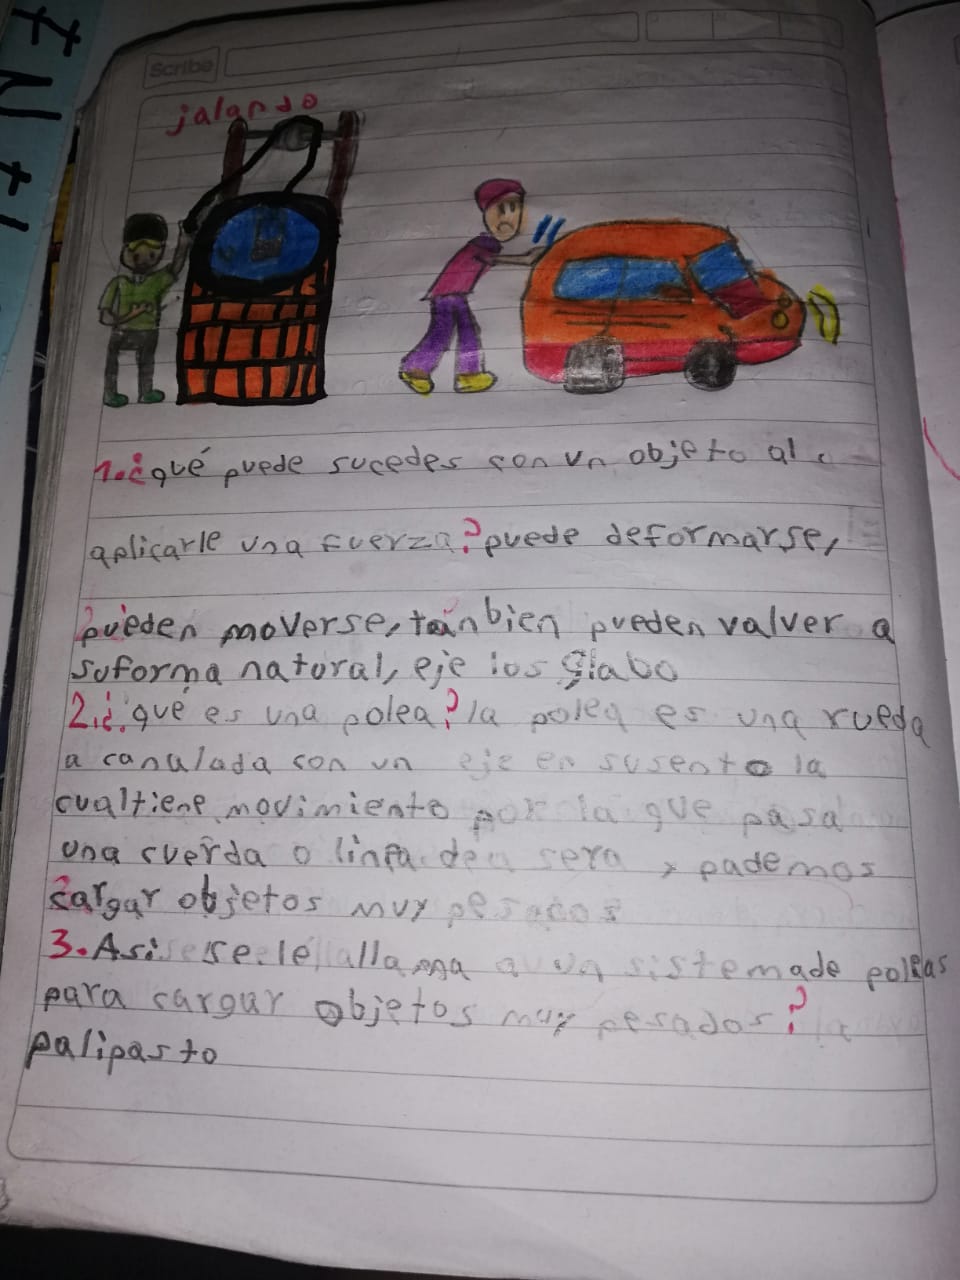 Scribe
jalando
1.¿qué puede sucedes con un objeto al
aplicarle una fuerza? puede deformarse,
pueden moverse, tanbien pueden valver a
suforma natural, eje los glabo
2.¿qué es una polea? la polea es una rueda
a canalada con un eje en susento la
cualtiene movimiento por la que pasa
una cuerda o linea de sera y pademos
cargar objetos muy pesados
3. Asi se le llama a un sistemade poleas
para cargar objetos muy pesados? la
palipasto